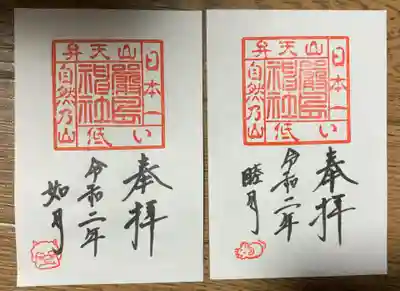 弁天山
日本一
低い
嚴島
神社
自然乃山
奉拝
令和二年
如月
弁天山
日本一
低い
嚴島
神社
自然乃山
奉拝
令和二年
睦月